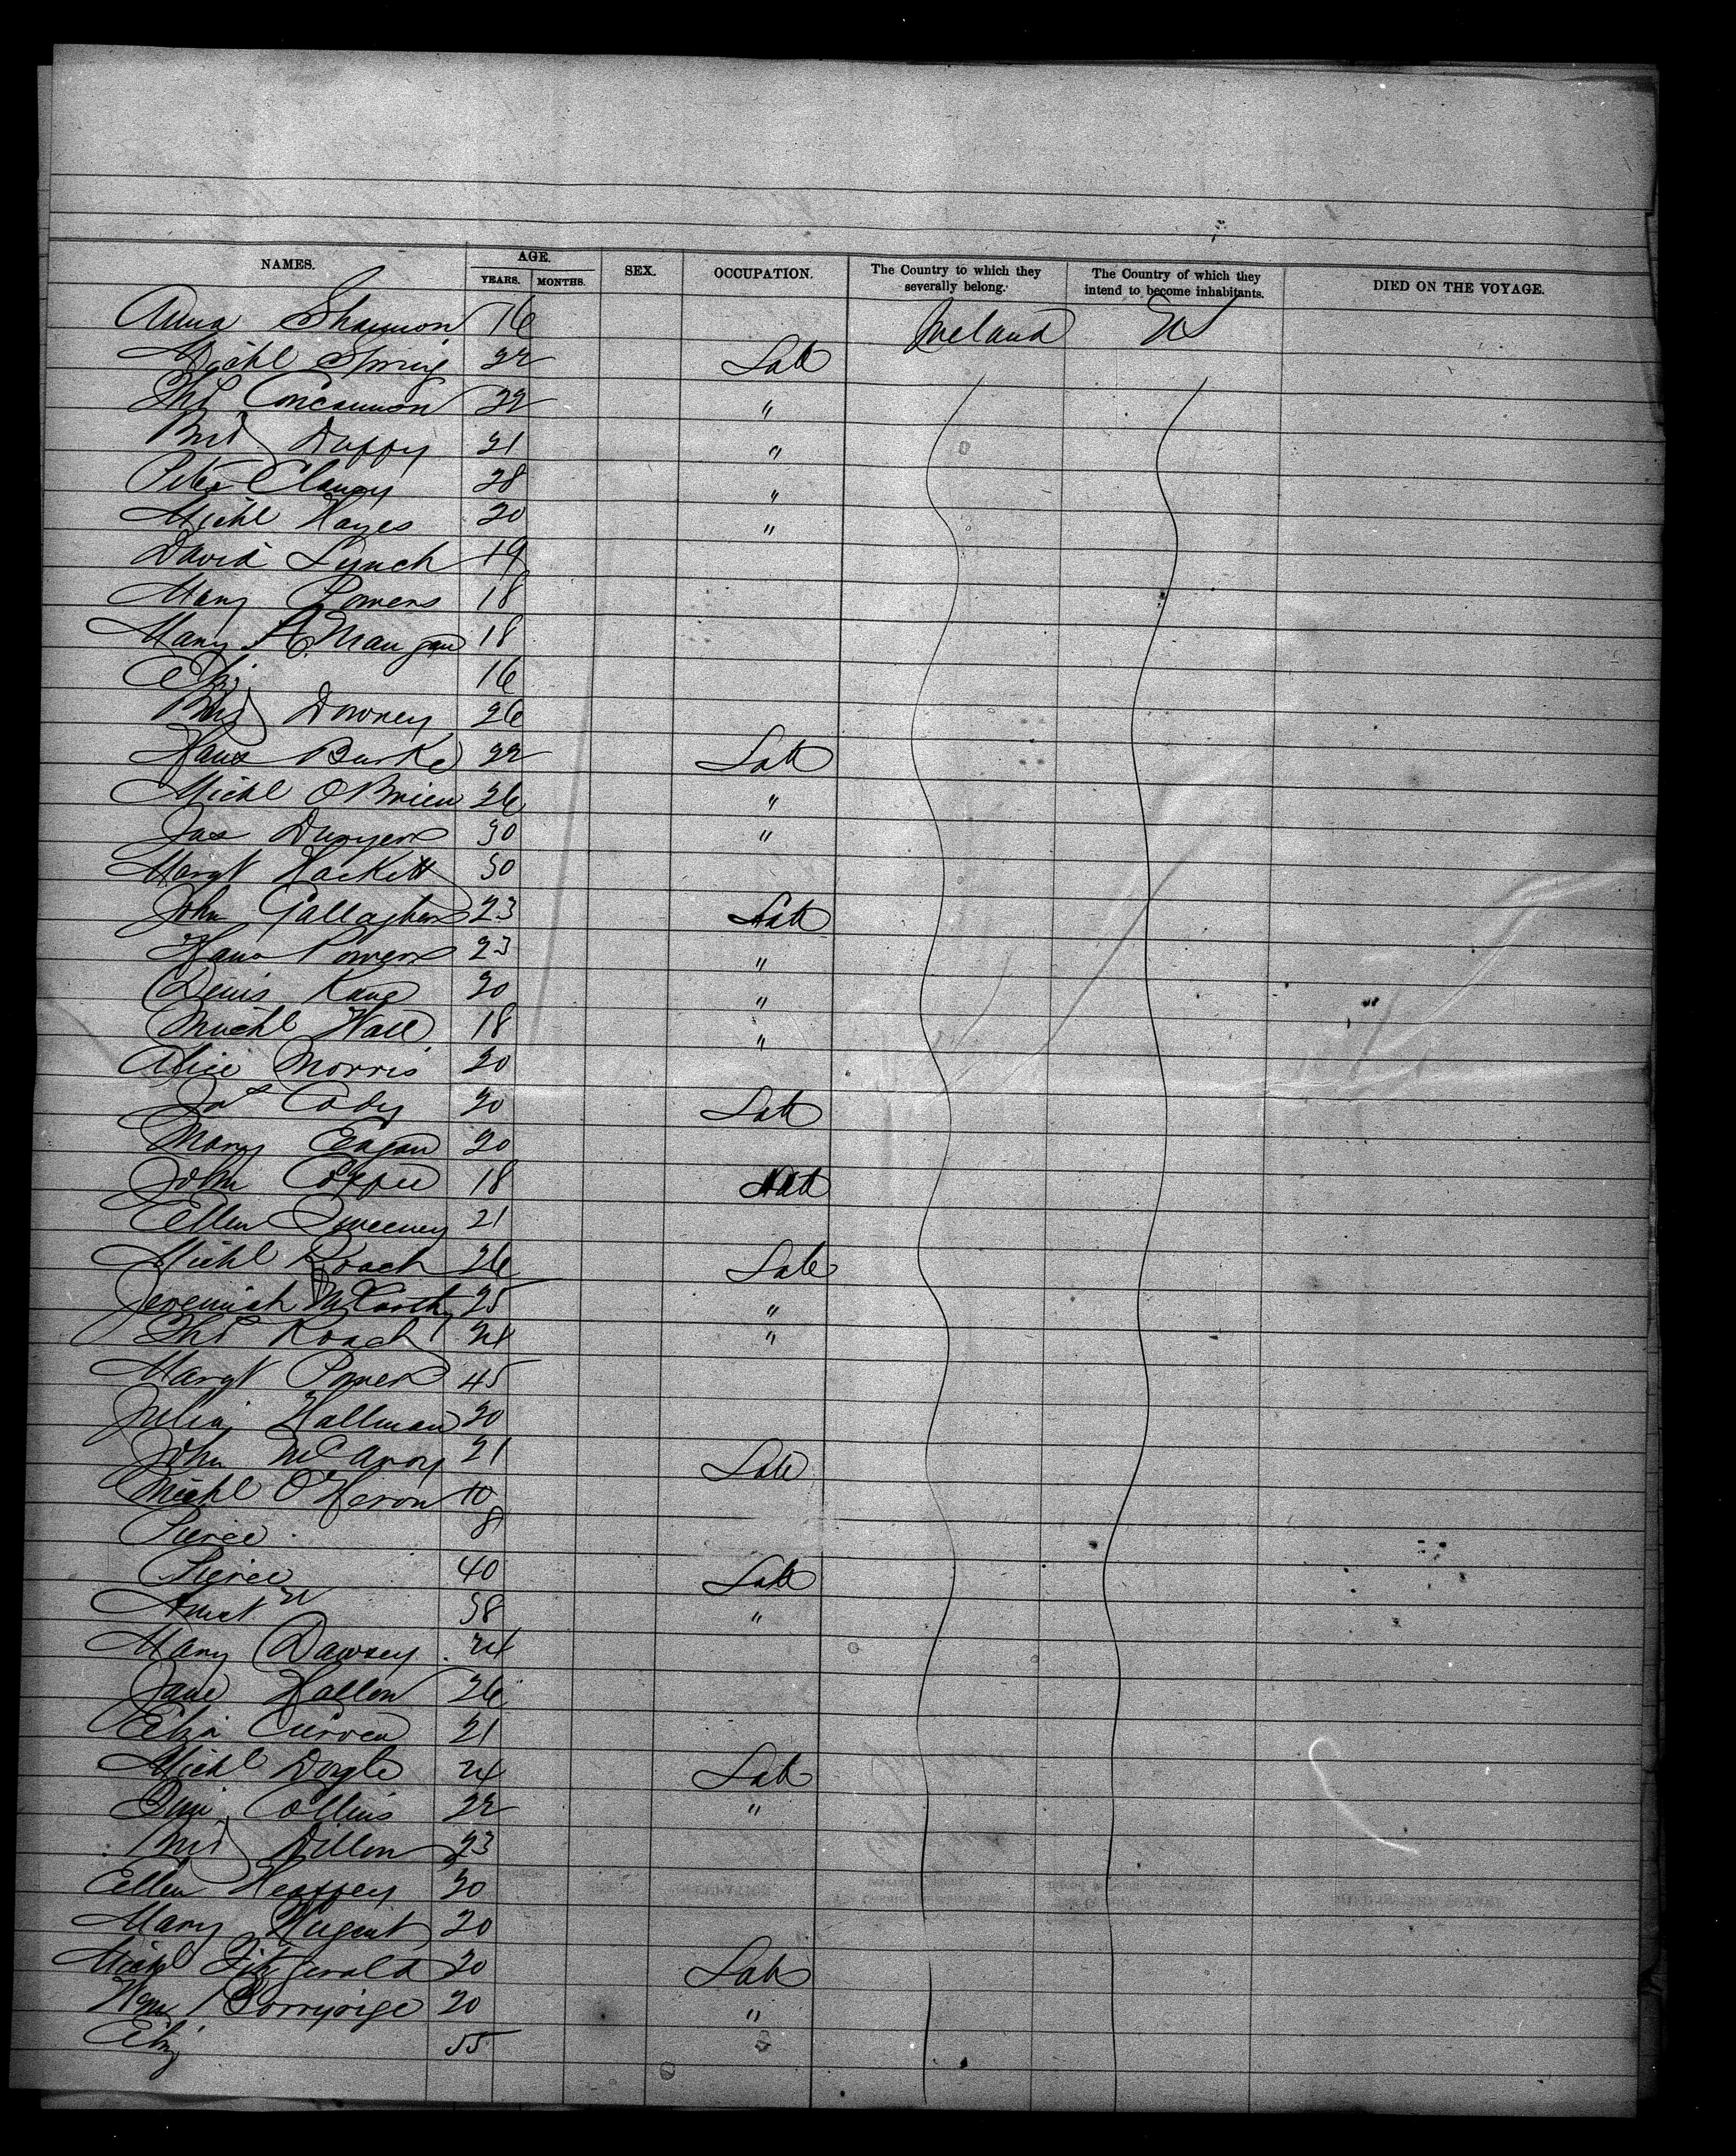 NAMES. AGE. SEX. OCCUPATION. The Country to which they severally belong. The Country of which they intend to become inhabitants. DIED ON THE VOYAGE.
YEARS. MONTHS.
Anna Shannon 16 Ireland
Michl Spring 22 Lab
Ths Concannon 22 "
Brid Duffy 21 "
Peter Clancy 28 "
Michl Hayes 20 "
David Lynch 19
Mary Powers 18
Mary A Mangan 18
Eliz 16
Brid Downey 26
Hans Burke 22 Lab
Michl O'Brien 26 "
Jas Dwyer 30 "
Margt Hackett 50
John Gallagher 23 Lab
Hans Powers 23 "
Denis Kane 20 "
Michl Wall 18 "
Alice Morris 20
Jas Cody 20 Lab
Mary Eagan 20
John Coffee 18 Lab
Ellen Sweeney 21
Michl Roach 26 Lab
Jeremiah McCarthy 25 "
Ths Roach 24 "
Margt Power 45
Julia Hallman 20
John McAvoy 21 Lab
Michl O'Heron 10
Pierce 8
Pierce 40 Lab
58 "
Mary Dawsey 24
Jane Hallon 26
Eliza Curren 21
Michl Doyle 24 Lab
Collins 22 "
Brid Dillon 23
Ellen Heaffey 20
Mary Nugent 20
Michl Fitzgerald 20 Lab
Wm 20 "
Eliz 55